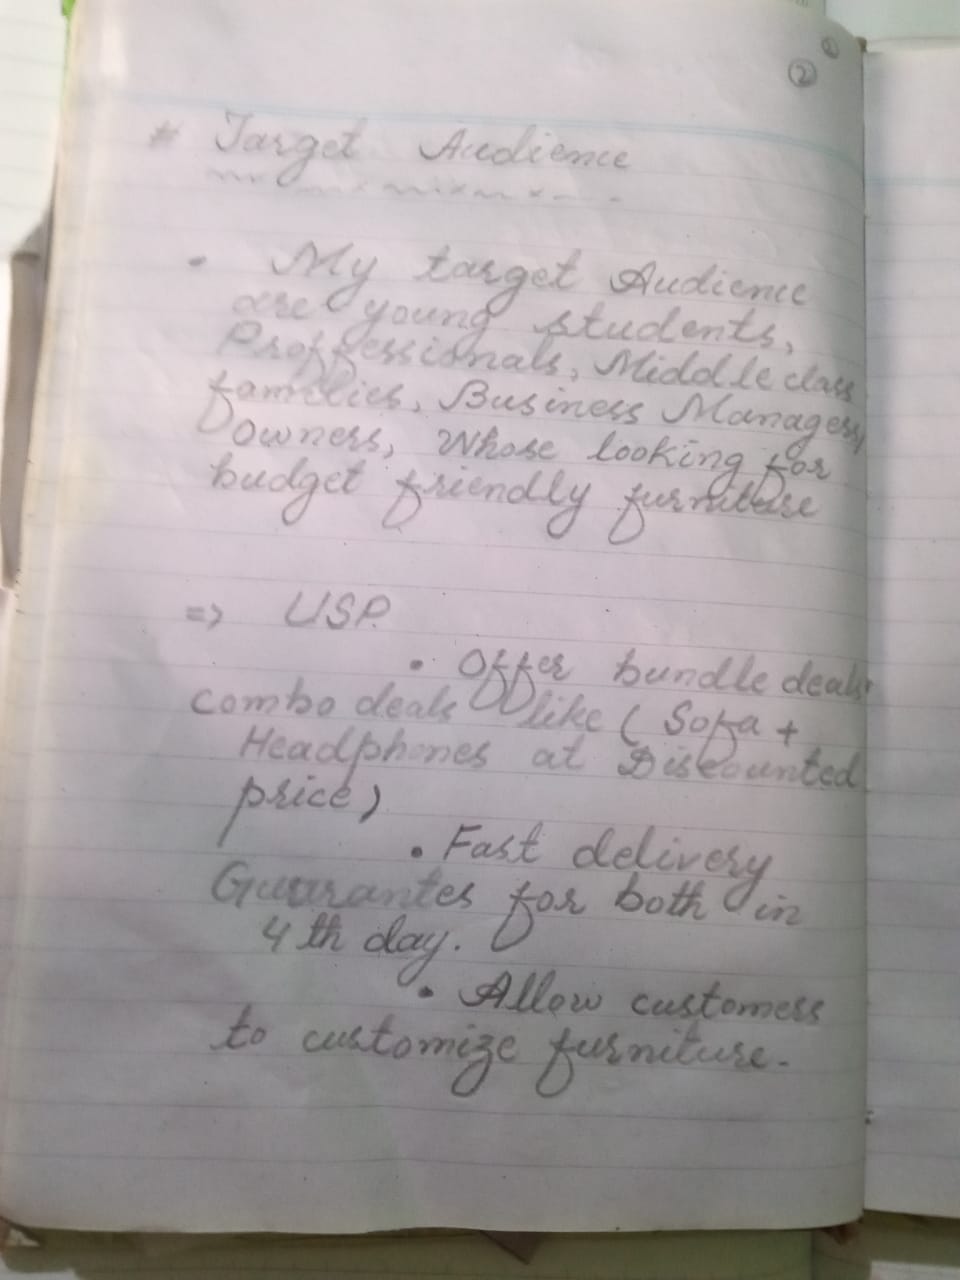 ②
# Target Audience
• My target Audience
are young students,
Proffessionals, Middle class
families, Business Managers,
Owners, Whose looking for
budget friendly furniture
=> USP.
• Offer bundle deals
combo deals like (Sofa +
Headphones at Discounted
price)
• Fast delivery
Guarantes for both in
4 th day.
• Allow customers
to customize furniture.